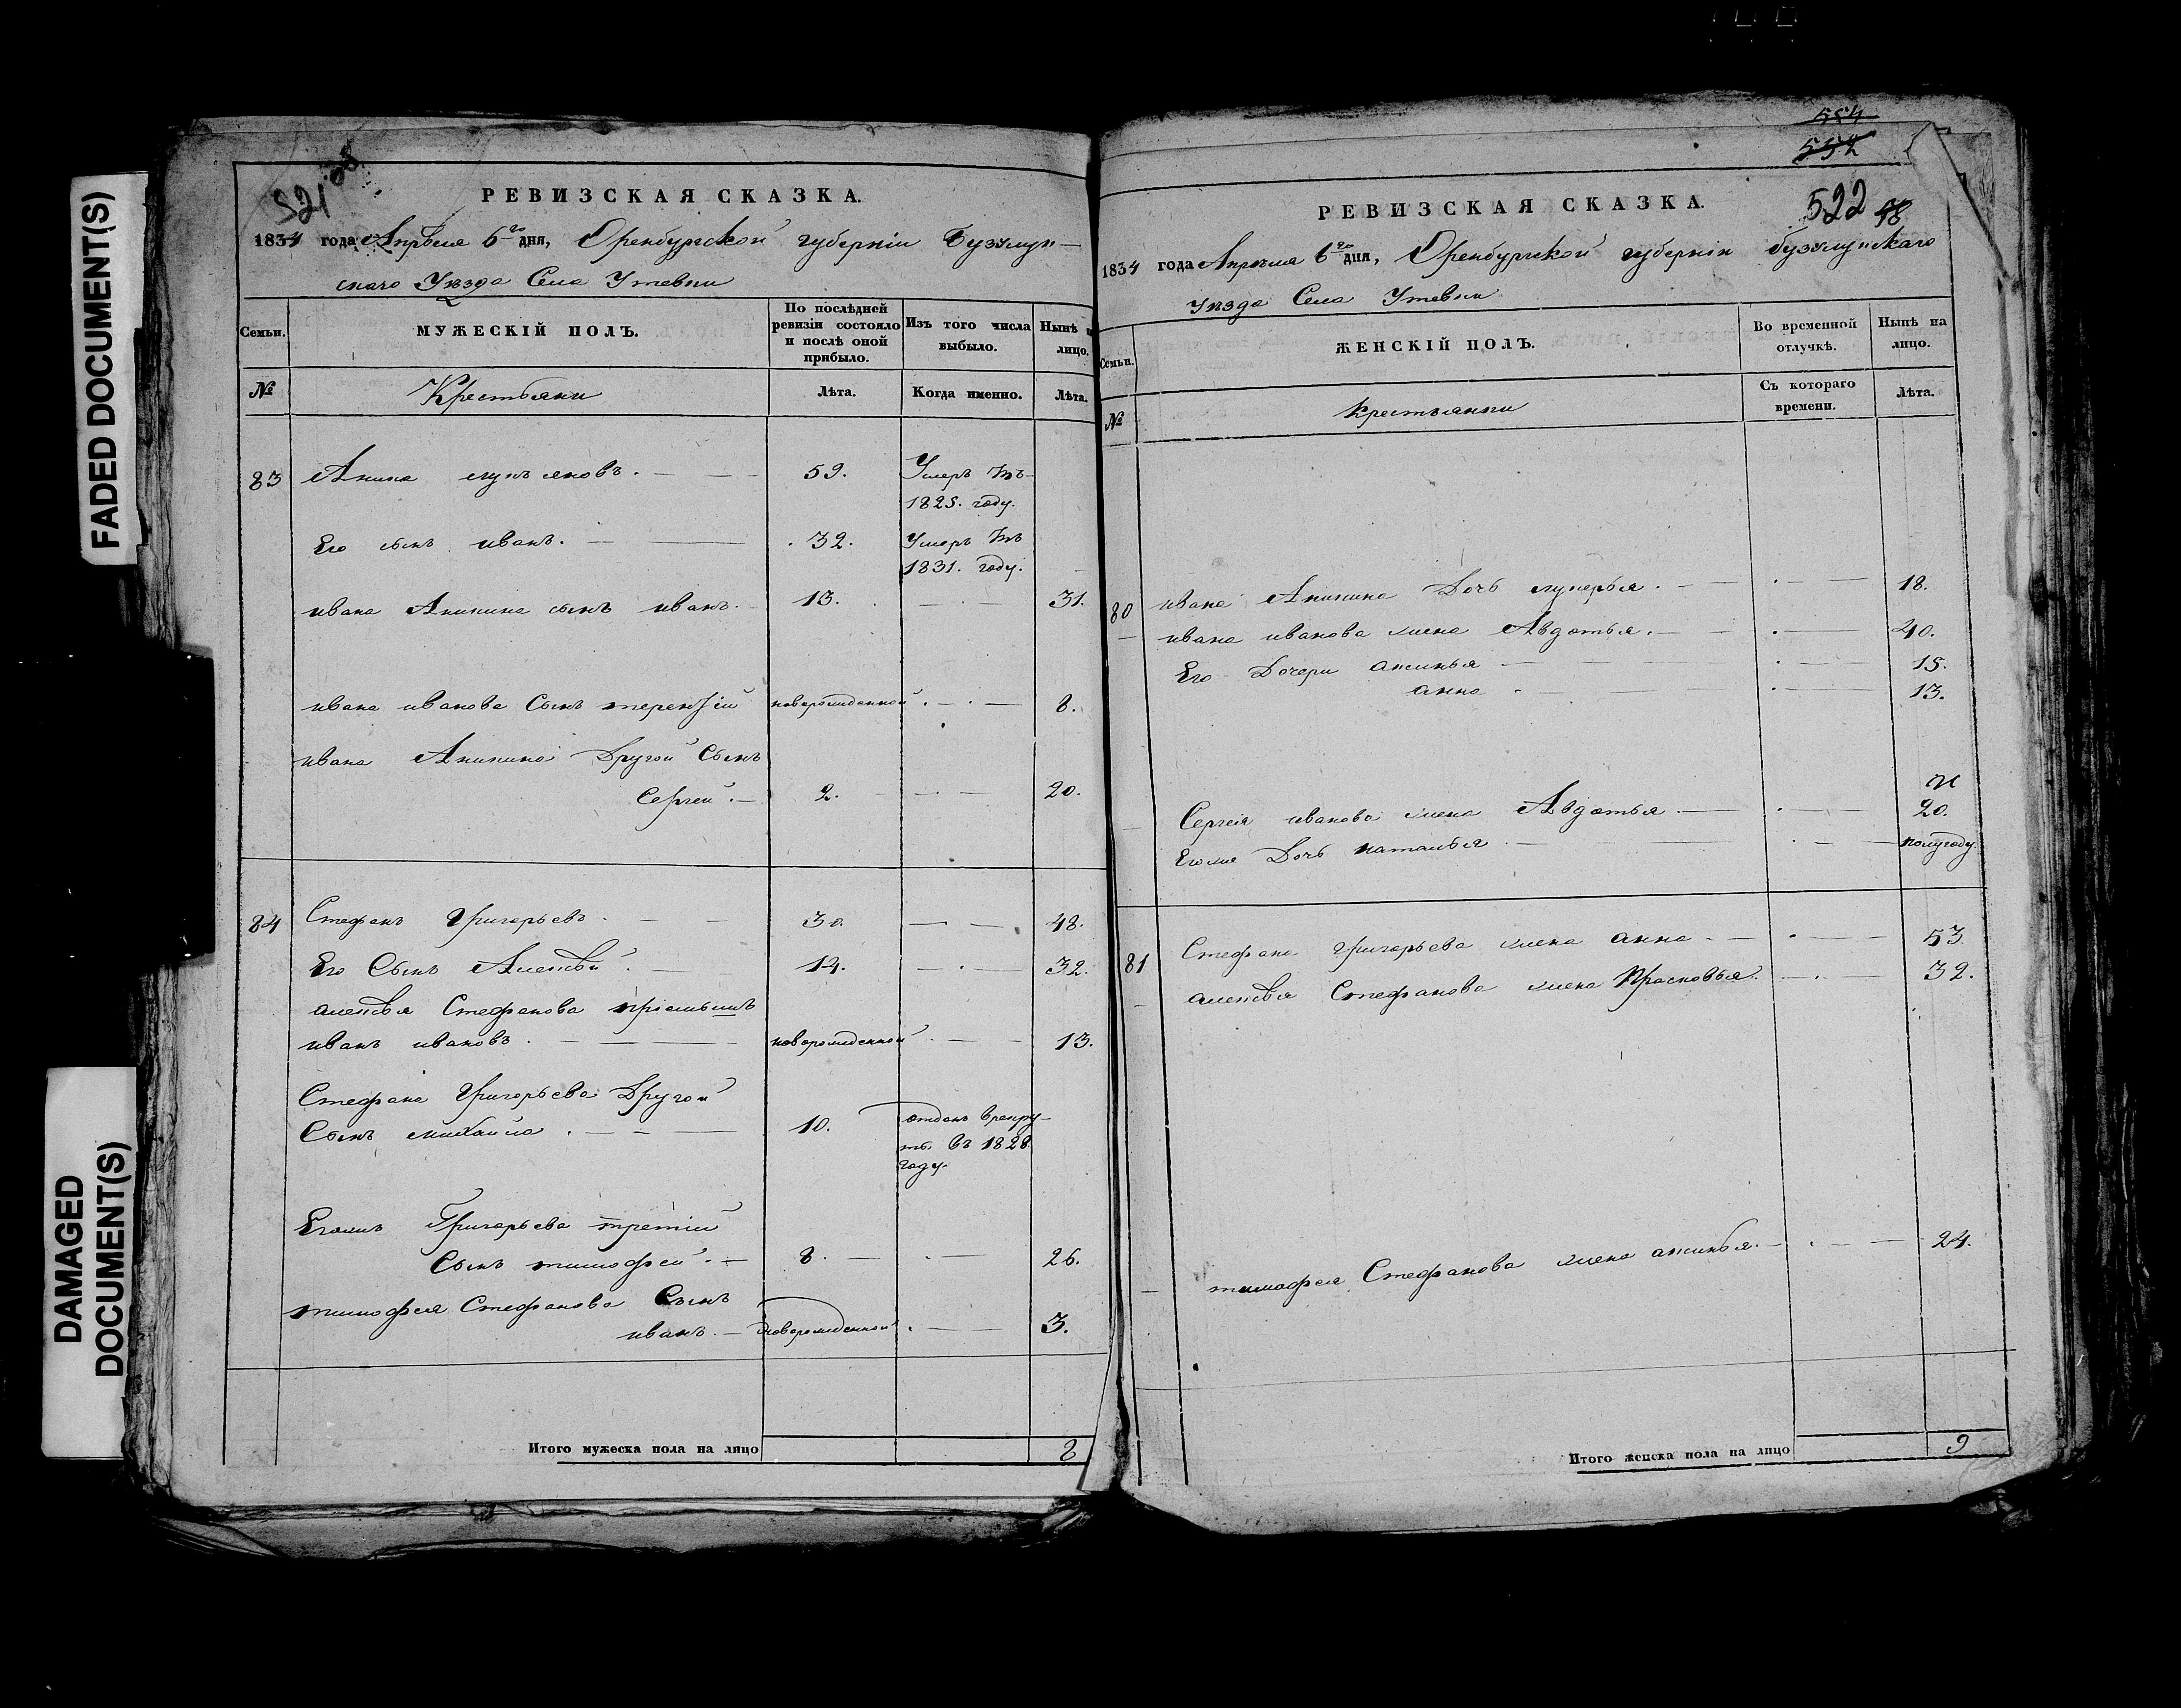 FADED DOCUMENT(S)
DAMAGED
DOCUMENT(S)
521
РЕВИЗСКАЯ СКАЗКА.
1834 года Апреля 6го дня, Оренбургской губернiи Бузулук-
скаго Уезда Села Утевки
Семьи.
МУЖЕСКІЙ ПОЛЪ.
По послѣдней
ревизіи состояло
и послѣ оной
прибыло.
Изъ того числа
выбыло.
Нынѣ н
лицо.
№
Крестьяни
Лѣта.
Когда именно.
Лѣта.
83 Аника лукъяновъ. 59. Умеръ Въ
1825. году.
Его сынъ иванъ. 32. Умеръ Въ
1831. году.
ивана Аникина сынъ иванъ. 13. 31.
ивана иванова Сынъ терентiй новорожденной 8.
ивана Аникина Другой Сынъ
Сергей. 2. 20.
84 Стефанъ Григорьевъ. 30. 48.
Его Сынъ Алексей 14. 32.
алексея Стефанова прiемышъ
иванъ ивановъ. новорожденной 13.
Стефана Григорьева Другой
Сынъ михайла. 10. отданъ врекру-
ты. въ 1828.
году.
Егожъ Григорьева третiй
Сынъ тимофей. 8. 26.
тимофея Стефанова Сынъ
иванъ. Новорожденной 3.
Итого мужеска пола на лицо 8
554
552
522 78
РЕВИЗСКАЯ СКАЗКА.
1834 года Апреля 6го дня, Оренбургской губернiи бузулукскаго
Уезда Села Утевки
Семьи.
ЖЕНСКІЙ ПОЛЪ.
Во временной
отлучкѣ.
Нынѣ на
лицо.
№
крестьянки
Съ котораго
времени.
Лѣта.
80 ивана Аникина Дочь лукерья. 18.
ивана иванова жена Авдотья. 40.
Его Дочери аксинья 15.
анна 13.
Сергея иванова жена Авдотья. 20.
Егоже Дочь наталья полугоду.
81 Стефана Григорьева жена анна. 53.
алексея Стефанова жена Прасковья. 32.
тимофея Стефанова жена аксинья. 24.
Итого женска пола на лицо 9